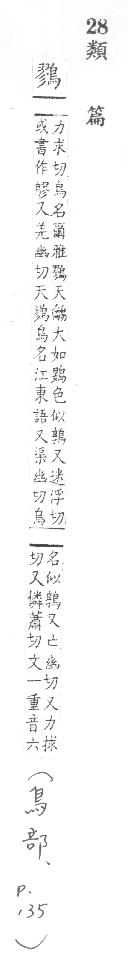 28類篇
鷚
力求切鳥名爾雅鷚天鸙大如鷃色似鶉又迷浮切
或書作䲧又羌幽切天鷚鳥名江東語又渠幽切鳥
名似鶉又亡幽切又力救
切又憐蕭切文一重音六
(鳥部、
p.
135)